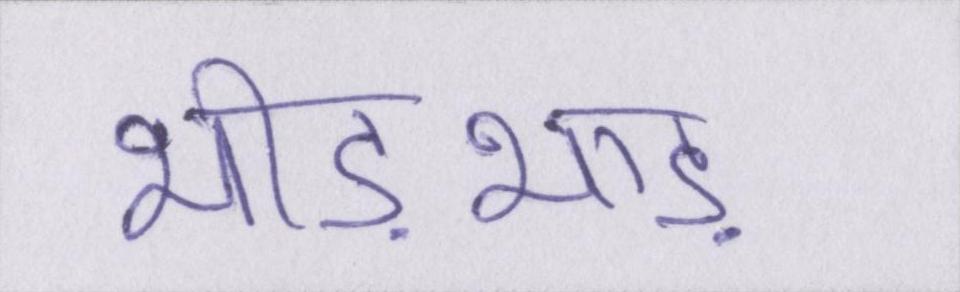 भीड़भाड़